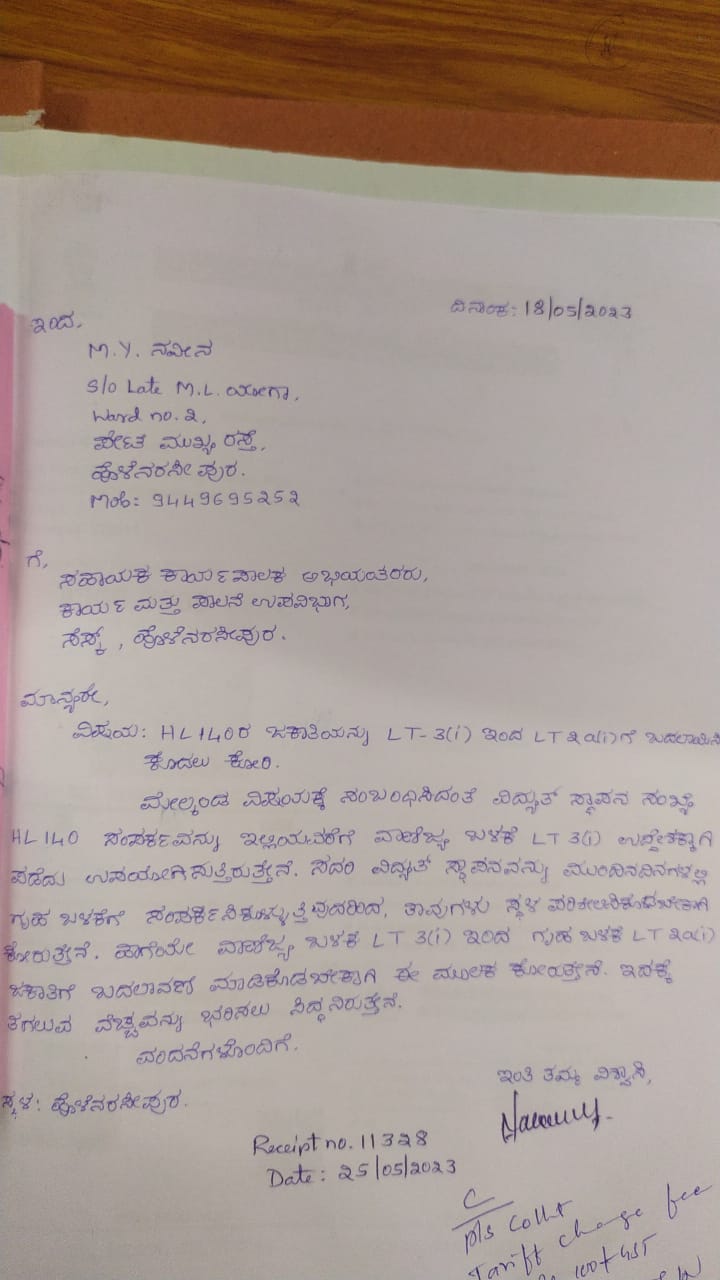 ದಿನಾಂಕ: 18/05/2023
ಇಂದ,
M.Y. ನವೀನ
S/o Late M.L. ಯೋಗಾ,
Ward no. 2,
ಪೇಟೆ ಮುಖ್ಯ ರಸ್ತೆ,
ಹೊಳೆನರಸೀಪುರ.
Mob: 9449695252
ಗೆ,
ಸಹಾಯಕ ಕಾರ್ಯಪಾಲಕ ಅಭಿಯಂತರರು,
ಕಾರ್ಯ ಮತ್ತು ಪಾಲನೆ ಉಪವಿಭಾಗ,
ಸೆಸ್ಕ್, ಹೊಳೆನರಸೀಪುರ.
ಮಾನ್ಯರೇ,
ವಿಷಯ: HL140ರ ಜಕಾತಿಯನ್ನು LT-3(i) ಇಂದ LT 2a(i)ಗೆ ಬದಲಾಯಿಸಿ
ಕೊಡಲು ಕೋರಿ.
ಮೇಲ್ಕಂಡ ವಿಷಯಕ್ಕೆ ಸಂಬಂಧಿಸಿದಂತೆ ವಿದ್ಯುತ್ ಸ್ಥಾಪನ ಸಂಖ್ಯೆ
HL140 ಸಂಪರ್ಕವನ್ನು ಇಲ್ಲಿಯವರೆಗೆ ವಾಣಿಜ್ಯ ಬಳಕೆ LT 3(i) ಉದ್ದೇಶಕ್ಕಾಗಿ
ಪಡೆದು ಉಪಯೋಗಿಸುತ್ತಿರುತ್ತೇನೆ. ಸದರಿ ವಿದ್ಯುತ್ ಸ್ಥಾಪನವನ್ನು ಮುಂದಿನದಿನಗಳಲ್ಲಿ
ಗೃಹ ಬಳಕೆಗೆ ಸಂಪರ್ಕಿಸಿಕೊಳ್ಳುತ್ತಿವುದರಿಂದ, ತಾವುಗಳು ಸ್ಥಳ ಪರಿಶೀಲಿಸಿಕೊಡಬೇಕಾಗಿ
ಕೋರುತ್ತೇನೆ. ಹಾಗೆಯೇ ವಾಣಿಜ್ಯ ಬಳಕೆ LT 3(i) ಇಂದ ಗೃಹ ಬಳಕೆ LT 2a(i)
ಜಕಾತಿಗೆ ಬದಲಾವಣೆ ಮಾಡಿಕೊಡಬೇಕಾಗಿ ಈ ಮೂಲಕ ಕೋರುತ್ತೇನೆ. ಇದಕ್ಕೆ
ತಗಲುವ ವೆಚ್ಚವನ್ನು ಭರಿಸಲು ಸಿದ್ಧನಿರುತ್ತೇನೆ.
ವಂದನೆಗಳೊಂದಿಗೆ.
ಇಂತಿ ತಮ್ಮ ವಿಶ್ವಾಸಿ,
ಸ್ಥಳ: ಹೊಳೆನರಸೀಪುರ.
Receipt no. 11328
Date: 25/05/2023
C
pls Collt
Tariff change fee
100+GST